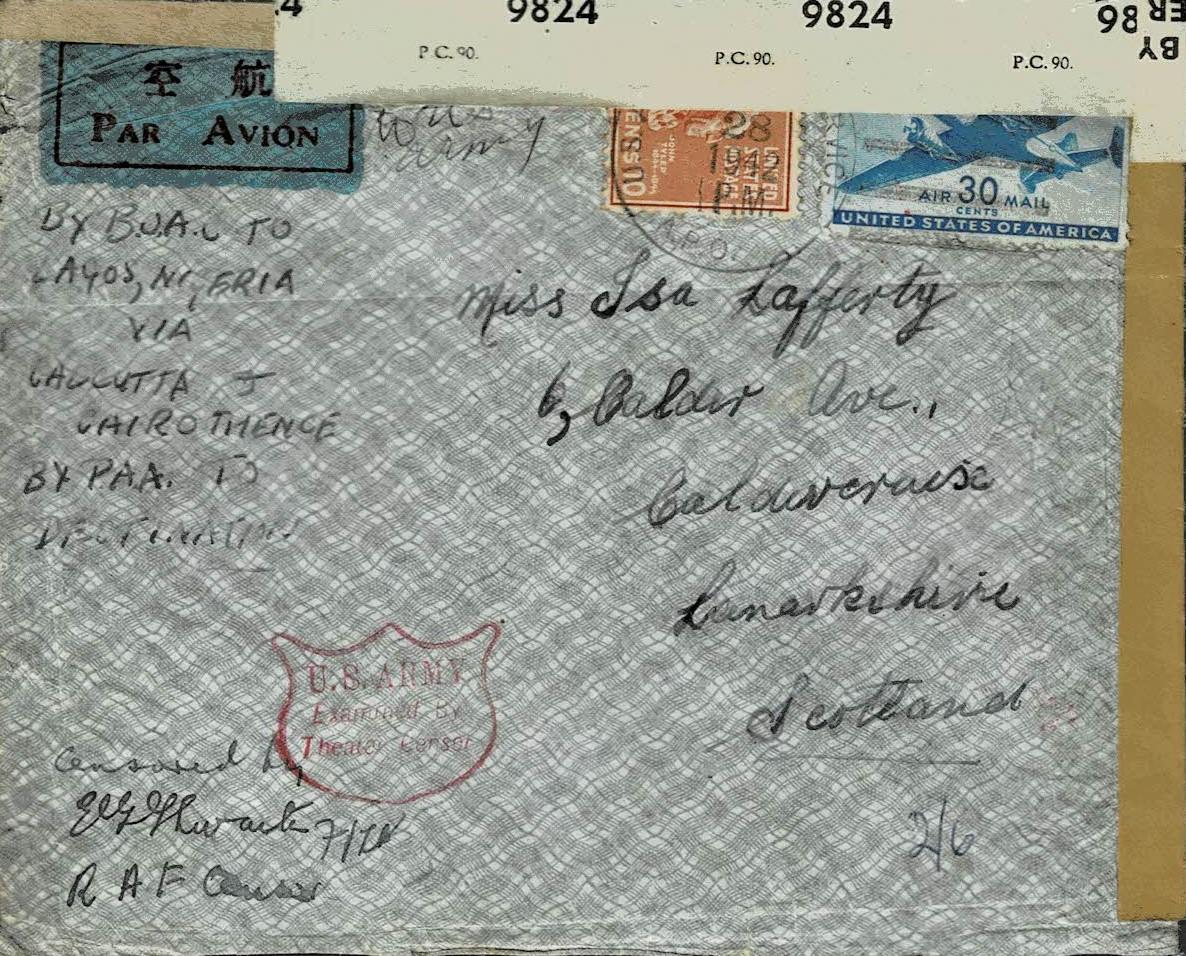 .4 9824 9824 98
P.C. 90. P.C. 90. P.C. 90.
BY
空 航
PAR AVION
Army
CENTS 10
JOHN
TYLER
UNITED
STATES
POSTAGE
28
1942
1 P.M.
U.S.
A.P.O.
AIR 30 MAIL
CENTS
UNITED STATES OF AMERICA
BY B.O.A.C TO
LAGOS, NIGERIA
VIA
CALCUTTA &
CAIRO THENCE
BY P.A.A. TO
DESTINATION
Miss Isa Lafferty
6, Calder Ave.,
Caldercruise
Lanarkshire
Scotland
U.S. ARMY
Examined By
Theater Censor
Censored by
R A F Censor
2/6